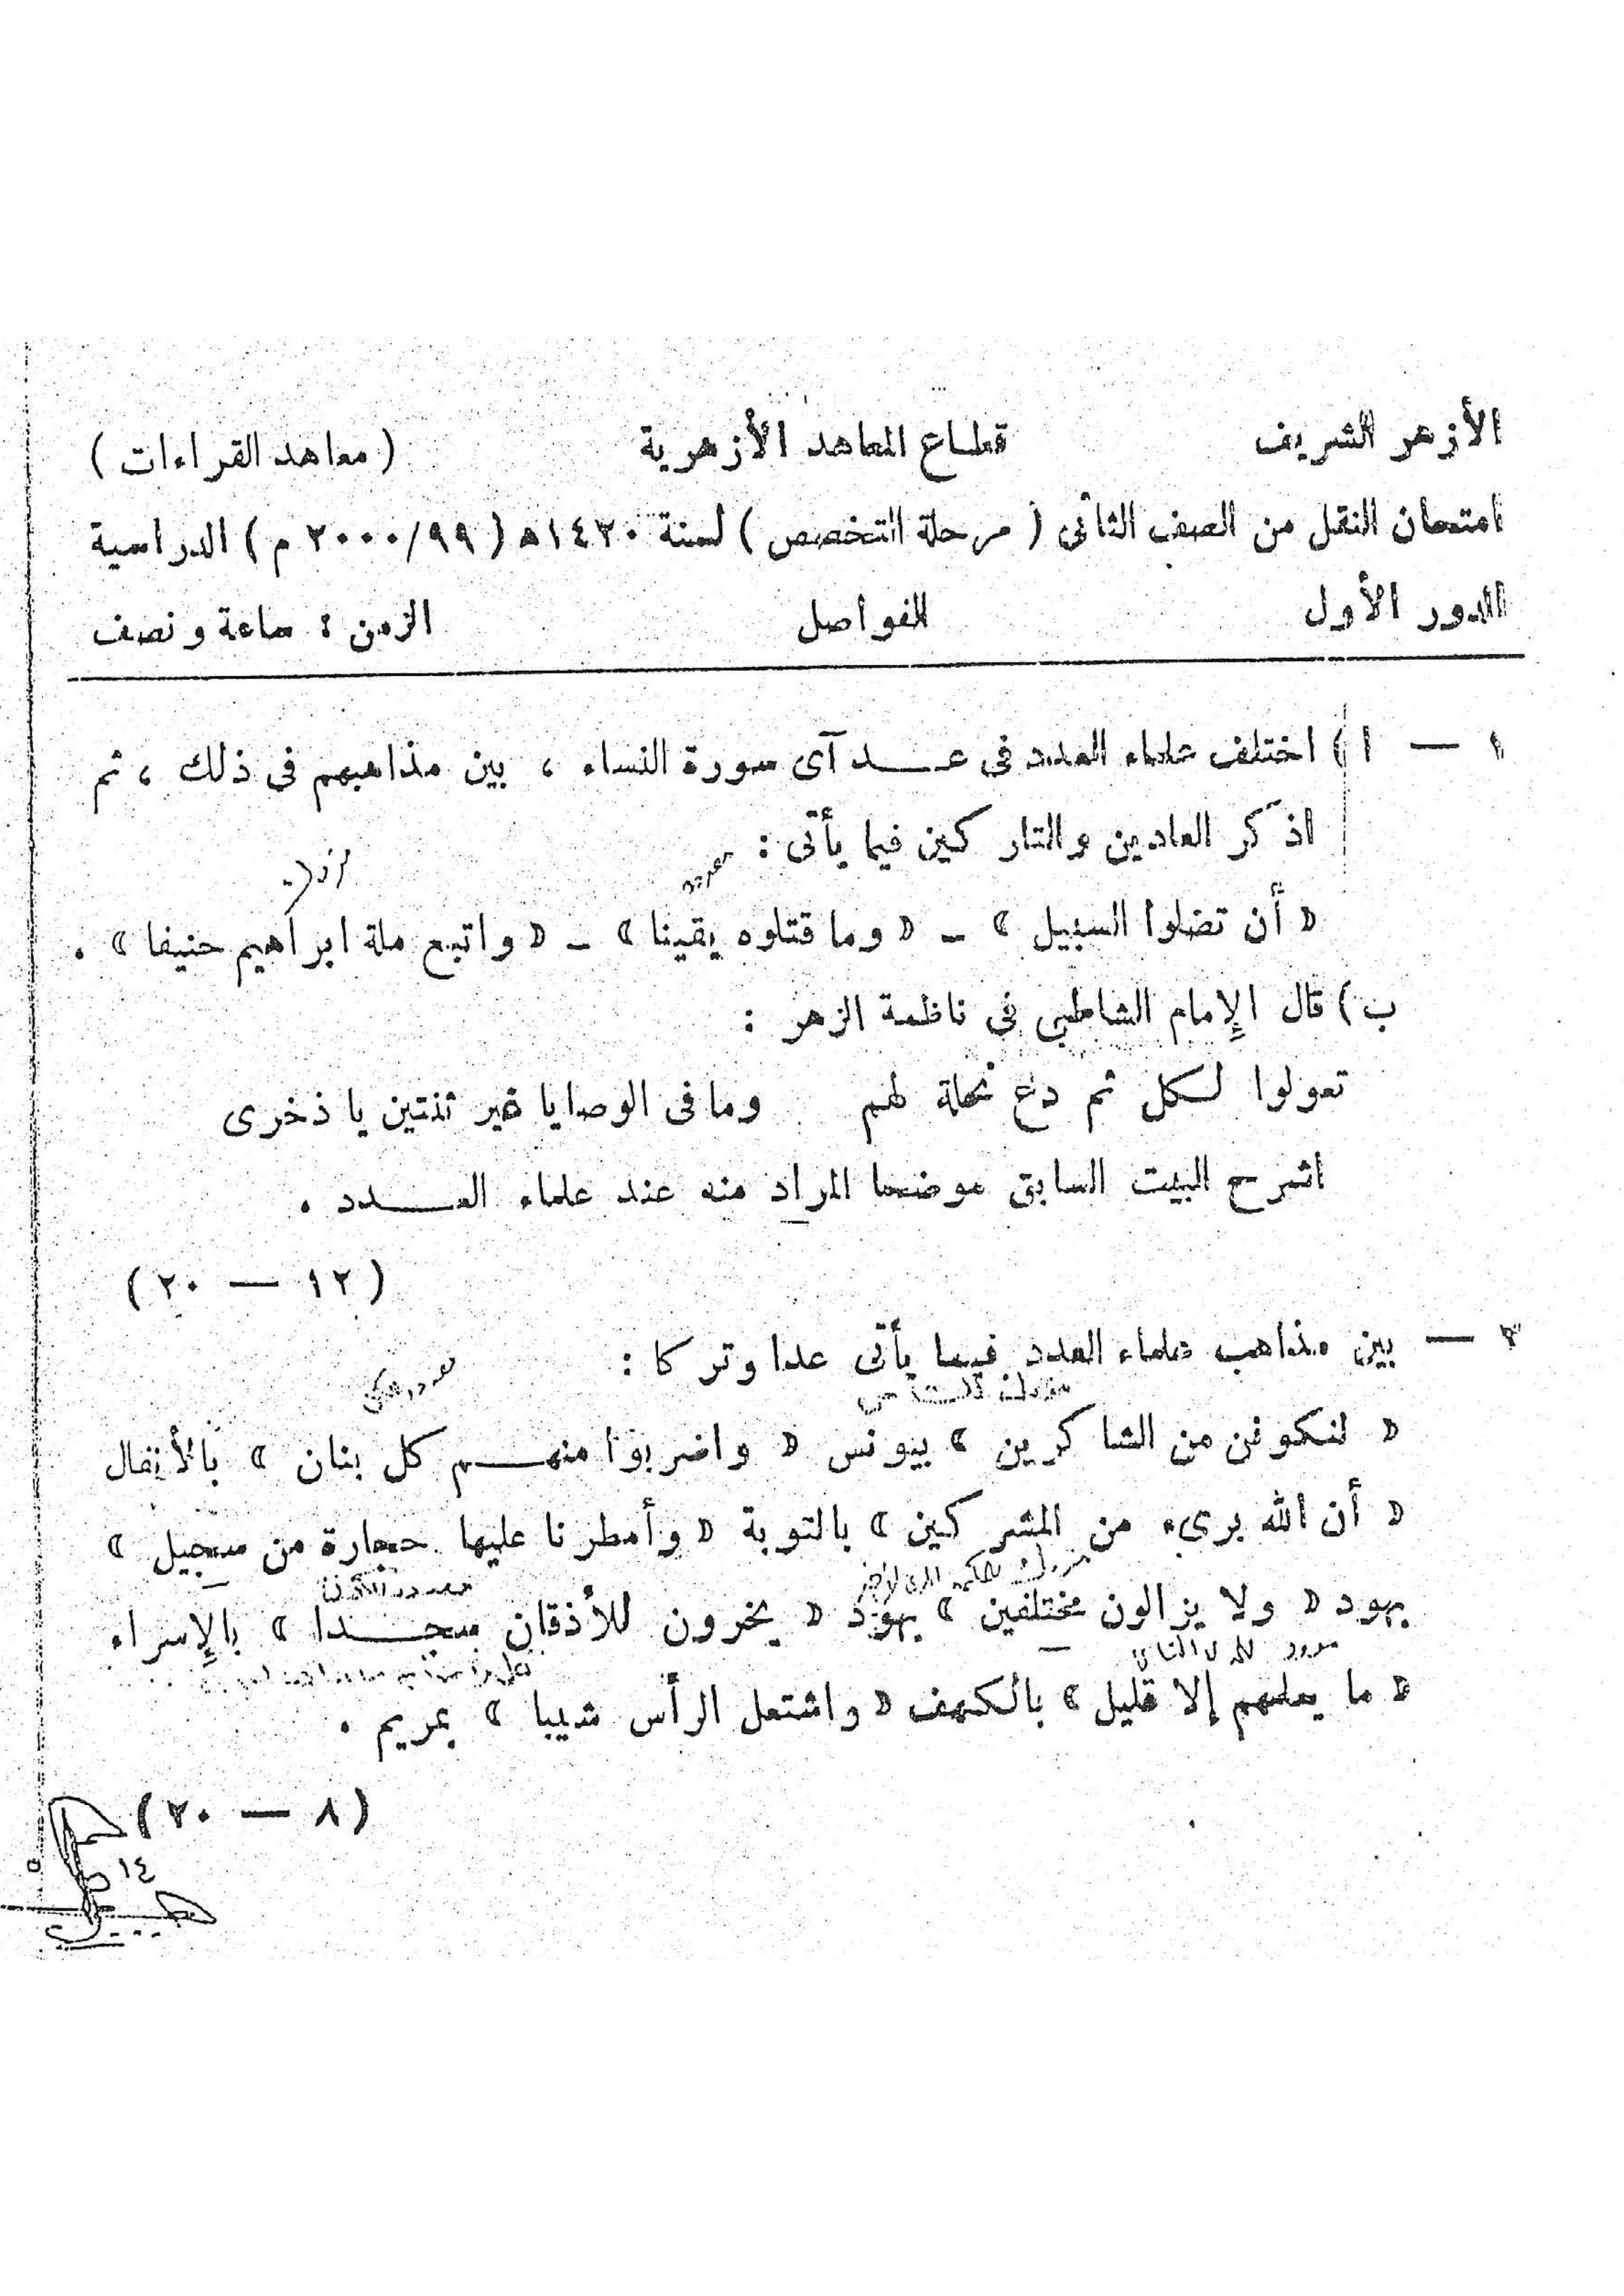 الأزهر الشريف قطاع المعاهد الأزهرية (معاهد القراءات)
امتحان النقل من الصف الثانى (مرحلة التخصص) لسنة ١٤٢٠ه (٢٠٠٠/٩٩ م) الدراسية
الدور الأول الفواصل الزمن : ساعة ونصف
١ — ا) اختلف علماء العدد فى عــد آى سورة النساء ، بين مذاهبهم فى ذلك ، ثم
اذكر العادين والتاركين فيما يأتى :
« أن تضلوا السبيل » – « وما قتلوه يقينا » – « واتبع ملة ابراهيم حنيفا » .
ب) قال الإمام الشاطبى فى ناظمة الزهر :
تعولوا لكل ثم دع نحلة لهم وما فى الوصايا غير ثنتين يا ذخرى
اشرح البيت السابق موضحا المراد منه عند علماء العــدد .
(١٢ — ٢٠)
٢ — بين مذاهب علماء العدد فيما يأتى عدا وتركا :
« لنكونن من الشاكرين » بيونس « واضربوا منهــم كل بنان » بالأنفال
« أن الله برىء من المشركين » بالتوبة « وأمطرنا عليها حجارة من سجيل »
بهود « ولا يزالون مختلفين » بهود « يخرون للأذقان سجــدا » بالإسراء
« ما يعلمهم إلا قليل » بالكهف « واشتعل الرأس شيبا » بمريم .
(٨ — ٢٠)
١٤